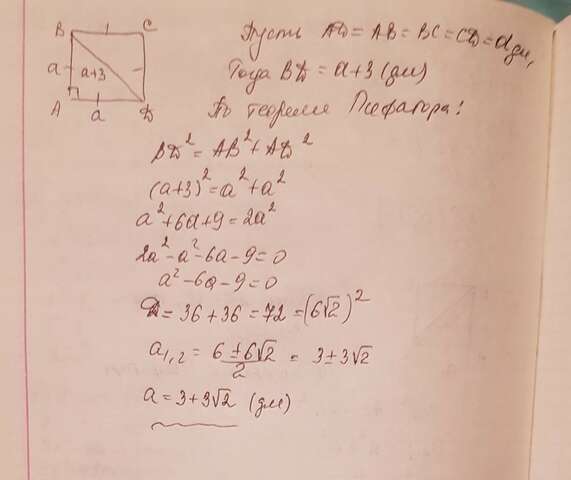 B C
a a+3
A a D
Пусть AD = AB = BC = CD = a дм,
Тогда BD = a+3 (дм)
По теореме Пифагора:
BD² = AB² + AD²
(a+3)² = a² + a²
a² + 6a + 9 = 2a²
2a² - a² - 6a - 9 = 0
a² - 6a - 9 = 0
D = 36 + 36 = 72 = (6√2)²
a₁,₂ = (6 ± 6√2)/2 = 3 ± 3√2
a = 3 + 3√2 (дм)